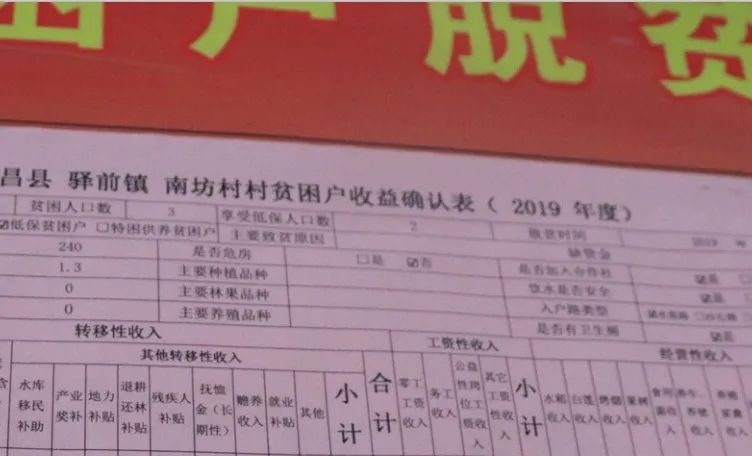 户脱贫
昌县 驿前镇 南坊村村贫困户收益确认表（ 2019 年度）
贫困人口数 3 享受低保人口数 2 脱贫时间 2019 年
☑低保贫困户 □特困供养贫困户 主要致贫原因 缺资金
240 是否危房 □是 ☑否 是否加入合作社 ☑是
1.3 主要种植品种 饮水是否安全 ☑是
0 主要林果品种 入户路类型 ☑水泥路
0 主要养殖品种 是否有卫生厕 ☑是
转移性收入 工资性收入 经营性收入
其他转移性收入
水库移民补助 产业奖补 地力补贴 退耕还林补贴 残疾人补贴 抚恤金（长期性） 赡养收入 就业补贴 其他 小计 合计 零工工资收入 务工收入 公益性岗位工资收入 其它工资性收入 小计 水稻收入 白莲收入 烤烟收入 果树收入